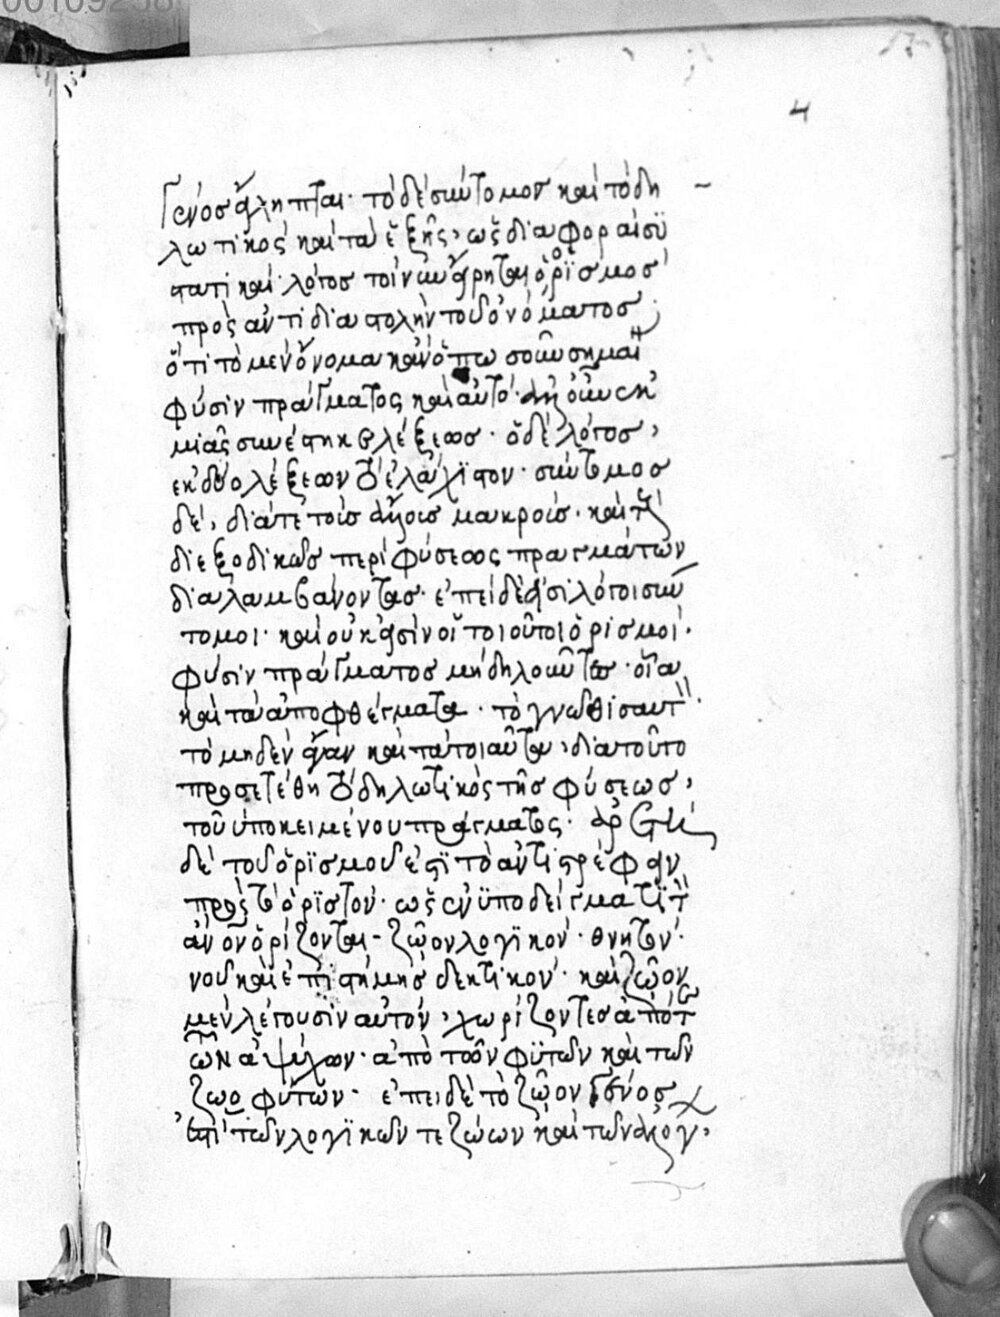 00109258
4
Γένος εἴληπται· τὸ δὲ σύντομον καὶ τὸ δη
λωτικὸς καὶ τὰ ἑξῆς, ὡς διαφοραὶ συ
στατικαί· λόγος τοίνυν εἴρηται ὁ ὁρισμὸς
πρὸς ἀντιδιαστολὴν τοῦ ὀνόματος
ὅτι τὸ μὲν ὄνομα κἂν ὅπωσοῦν σημαίνῃ
φύσιν πράγματος καὶ αὐτό· ἀλλ' οὖν ἐκ
μιᾶς συνέστηκε λέξεως· ὁ δὲ λόγος,
ἐκ δύο λέξεων τὸ ἐλάχιστον· σύντομος
δὲ, διά τε τοῖς ἄλλοις μακροῖς· καὶ
διεξοδικῶς περὶ φύσεως πραγμάτων
διαλαμβάνοντας· ἐπεὶ δέ εἰσι λόγοι σύν
τομοι· καὶ οὔκ εἰσιν οἱ τοιοῦτοι ὁρισμοί·
φύσιν πράγματος μὴ δηλοῦντες· οἷα
καὶ τὰ ἀποφθέγματα· τὸ γνῶθι σαυτὸν·
τὸ μηδὲν ἄγαν καὶ τὰ τοιαῦτα, διὰ τοῦτο
προσετέθη τὸ δηλωτικὸς τῆς φύσεως,
τοῦ ὑποκειμένου πράγματος· ἀρετὴ
δὲ τοῦ ὁρισμοῦ ἐστι τὸ ἀντιστρέφειν
πρὸς τὸ ὁριστόν· ὡς ἐν ὑποδείγματι τὸν
ἄνον ὁρίζονται· ζῶον λογικόν· θνητόν·
νοῦ καὶ ἐπιστήμης δεκτικόν· καὶ ζῶον
μὲν λέγουσιν αὐτόν, χωρίζοντες ἀπὸ τῶν
ἀψύχων· ἀπὸ τῶν φυτῶν καὶ τῶν
ζωοφύτων· ἐπεὶ δὲ τὸ ζῶον γένος
ἐστὶ τῶν λογικῶν τε ζώων καὶ τῶν ἀλόγ,